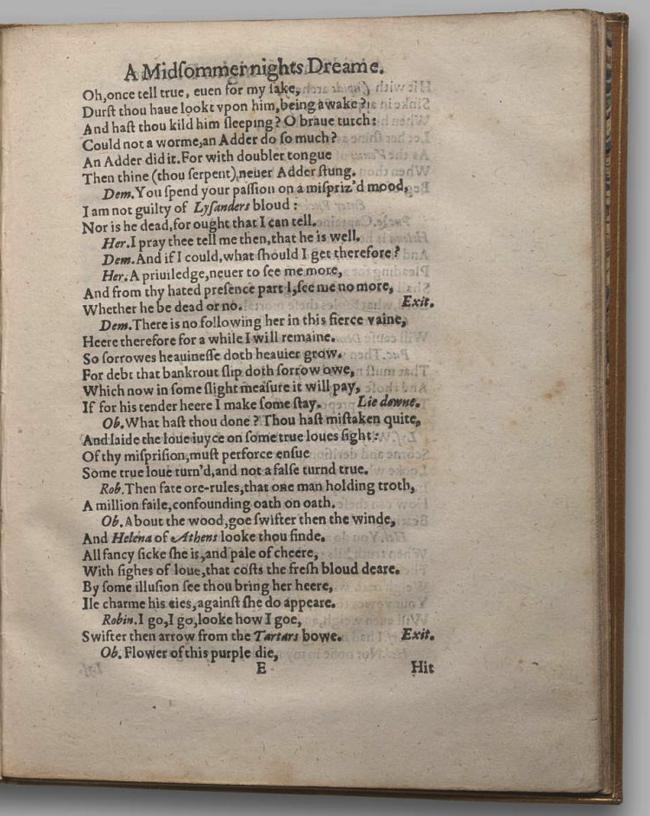 A Midſommer nights Dreame.
Oh, once tell true, euen for my ſake,
Durſt thou haue lookt vpon him, being awake?
And haſt thou kild him ſleeping? O braue tutch:
Could not a worme, an Adder do ſo much?
An Adder did it. For with doubler tongue
Then thine (thou ſerpent) neuer Adder ſtung.
Dem. You ſpend your paſſion on a miſpriz'd mood,
I am not guilty of Lyſanders bloud:
Nor is he dead, for ought that I can tell.
Her. I pray thee tell me then, that he is well.
Dem. And if I could, what ſhould I get therefore?
Her. A priuiledge, neuer to ſee me more,
And from thy hated preſence part I, ſee me no more,
Whether he be dead or no. Exit.
Dem. There is no following her in this fierce vaine,
Heere therefore for a while I will remaine.
So ſorrowes heauineſſe doth heauier grow.
For debt that bankrout ſlip doth ſorrow owe,
Which now in ſome ſlight meaſure it will pay,
If for his tender heere I make ſome ſtay. Lie downe.
Ob. What haſt thou done? Thou haſt miſtaken quite,
And laide the loue iuyce on ſome true loues ſight:
Of thy miſpriſion, muſt perforce enſue
Some true loue turn'd, and not a falſe turnd true.
Rob. Then fate ore-rules, that one man holding troth,
A million faile, confounding oath on oath.
Ob. About the wood, goe ſwifter then the winde,
And Helena of Athens looke thou finde.
All fancy ſicke ſhe is, and pale of cheere,
With ſighes of loue, that coſts the freſh bloud deare.
By ſome illuſion ſee thou bring her heere,
Ile charme his eies, againſt ſhe do appeare.
Robin. I go, I go, looke how I goe,
Swifter then arrow from the Tartars bowe. Exit.
Ob. Flower of this purple die,
E Hit